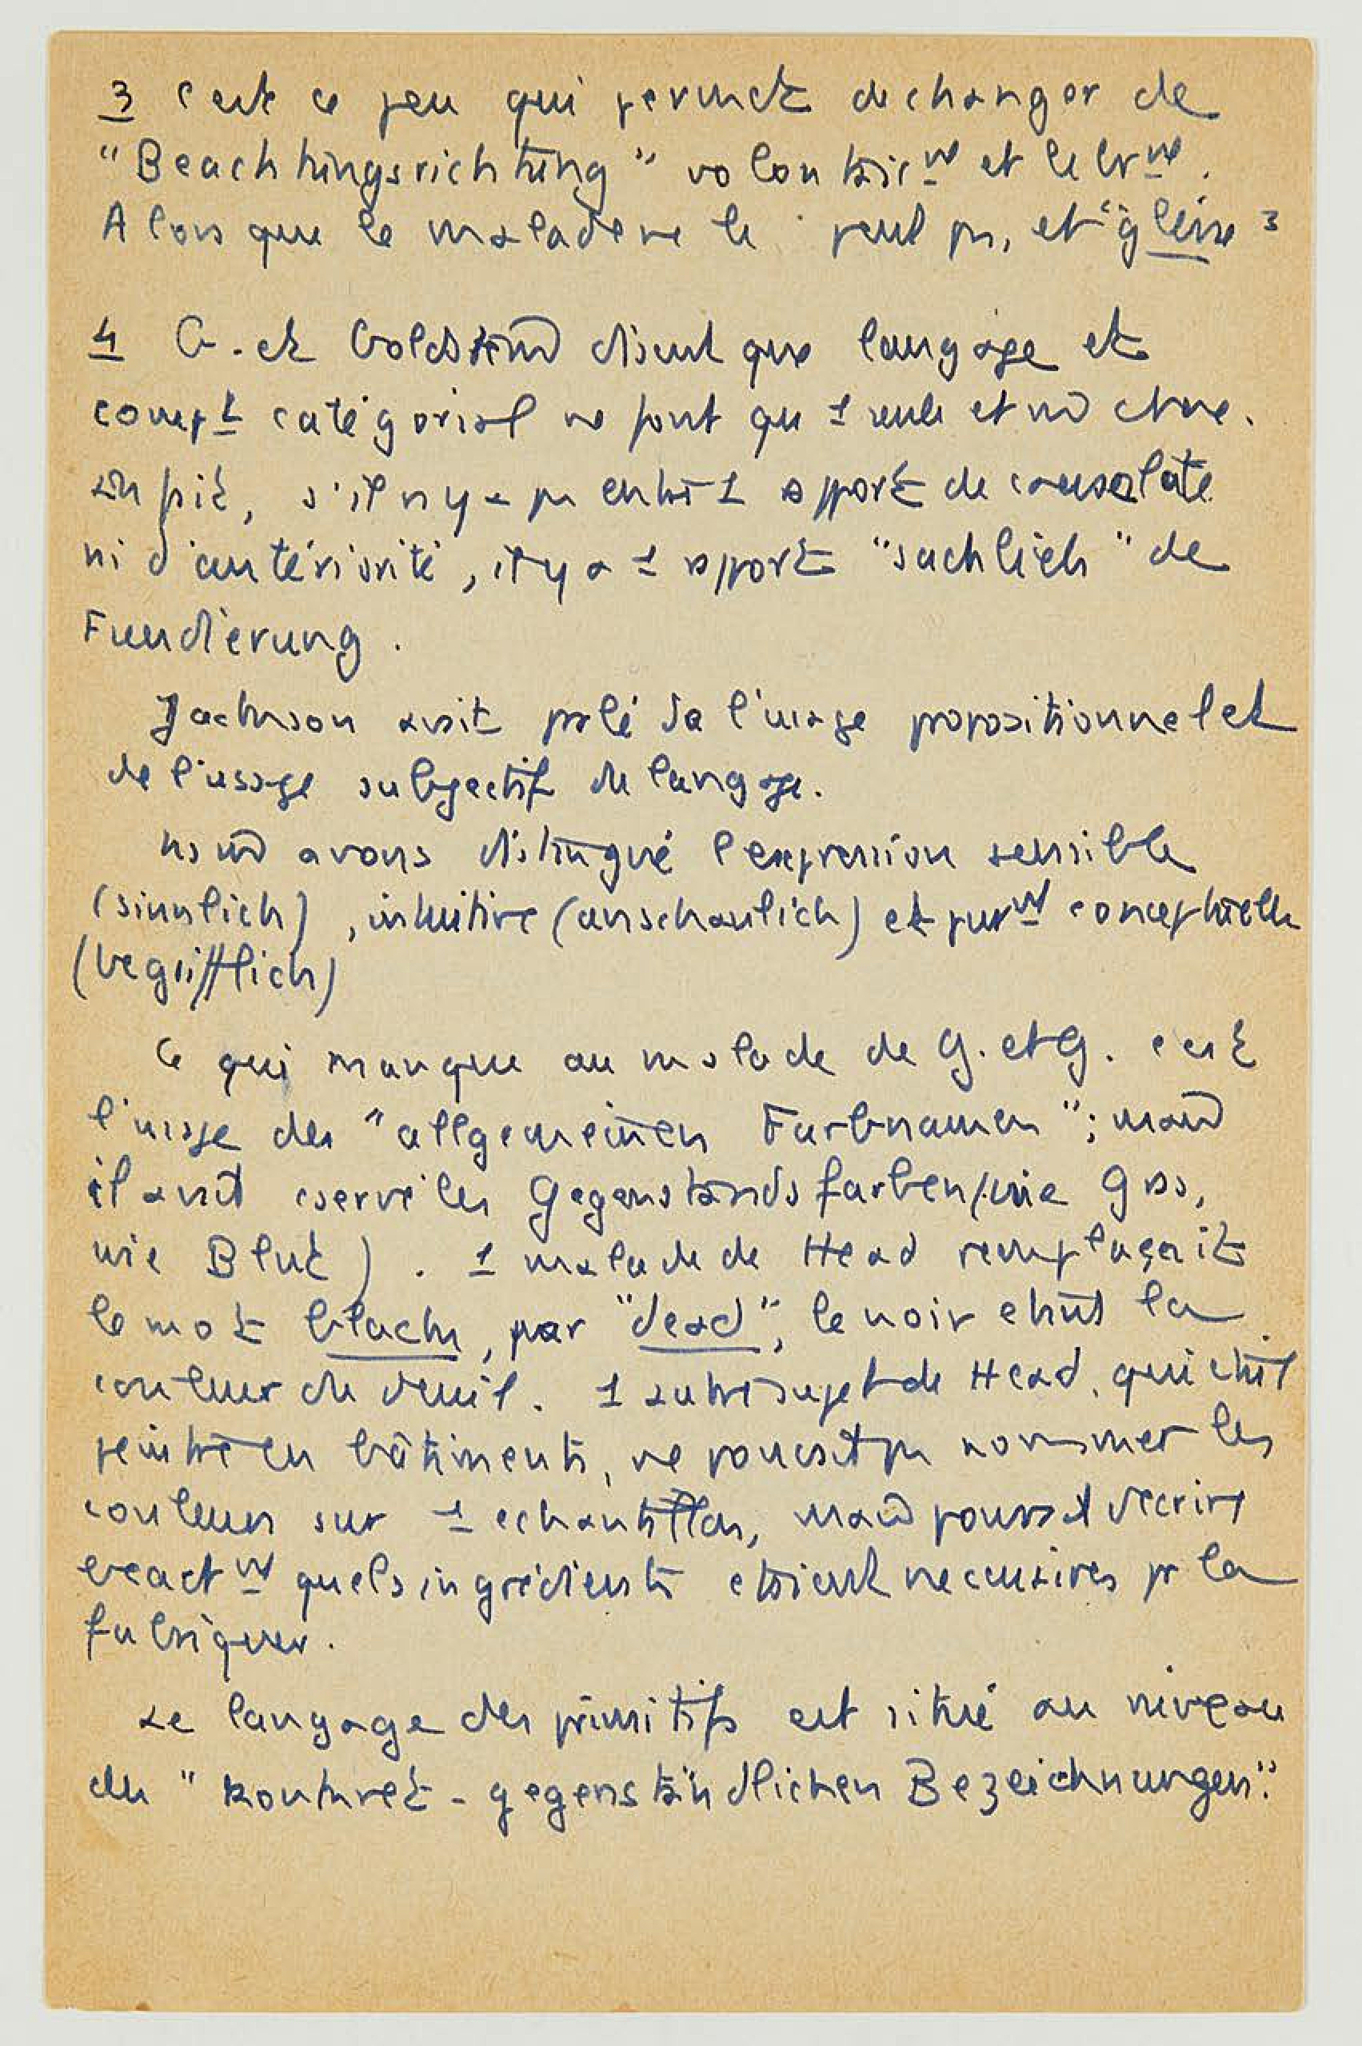 3 c'est ce jeu qui permet de changer de
"Beachtungsrichtung" volontair^mt et libr^mt.
Alors que le malade ne le peut pas, et "glisse"
4 G. et Goldstein disent que langage et
compt catégorial ne font qu 1 seule et m̂ chose.
En fait, s'il n y a pas entre 1 rapport de causalité
ni d'antériorité, il y a 1 rapport "sachlich" de
Fundierung.
Jackson avait parlé de l'usage propositionnel et
de l'usage subjectif du langage.
Nous avons distingué l'expression sensible
(sinnlich), intuitive (anschaulich) et pur^mt conceptuelle
(begrifflich)
Ce qui manque au malade de G. et G. c'est
l'usage des "allgemeinen Farbnamen"; mais
il avait conservé les Gegenstandsfarben (wie Gras,
wie Blut). 1 malade de Head remplaçait
le mot black, par "dead", le noir étant la
couleur du deuil. 1 autre sujet de Head, qui était
peintre en bâtiments, ne pouvait pas nommer les
couleurs sur 1 echantillon, mais pouvait décrire
exact^mt quels ingrédients étaient nécessaires pr la
fabriquer.
Le langage des primitifs est situé au niveau
des "konkret-gegenständlichen Bezeichnungen".